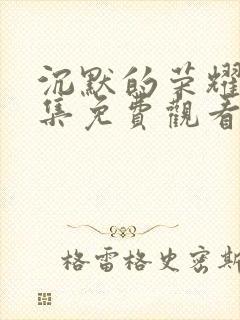 沉默的荣耀
集免費觀看
格雷格史密斯